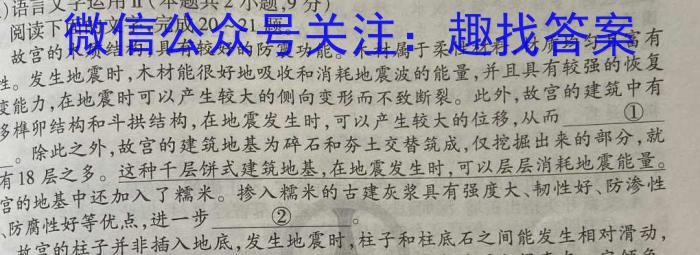 语言文字运用Ⅱ(本题共2小题,9分)
阅读下
完成20~21题。
微信公众号关注：趣找答案
故宫的木
结构,具有较好的防震功能。木材属于柔
富有
性。发生地震时,木材能很好地吸收和消耗地震波的能量,并且具有较强的恢复
变能力,在地震时可以产生较大的侧向变形而不致断裂。此外,故宫的建筑中有
多榫卯结构和斗拱结构,在地震发生时,可以产生较大的位移,从而 ①
。除此之外,故宫的建筑地基为碎石和夯土交替筑成,仅挖掘出来的部分,就
有18层之多。这种千层饼式建筑地基,在地震发生时,可以层层消耗地震能量。
宫的地基中还加入了糯米。掺入糯米的古建灰浆具有强度大、韧性好、防渗性
、防腐性好等优点,进一步 ② 。
故宫的柱子并非插入地底,发生地震时,柱子和柱底石之间能发生相对滑动,